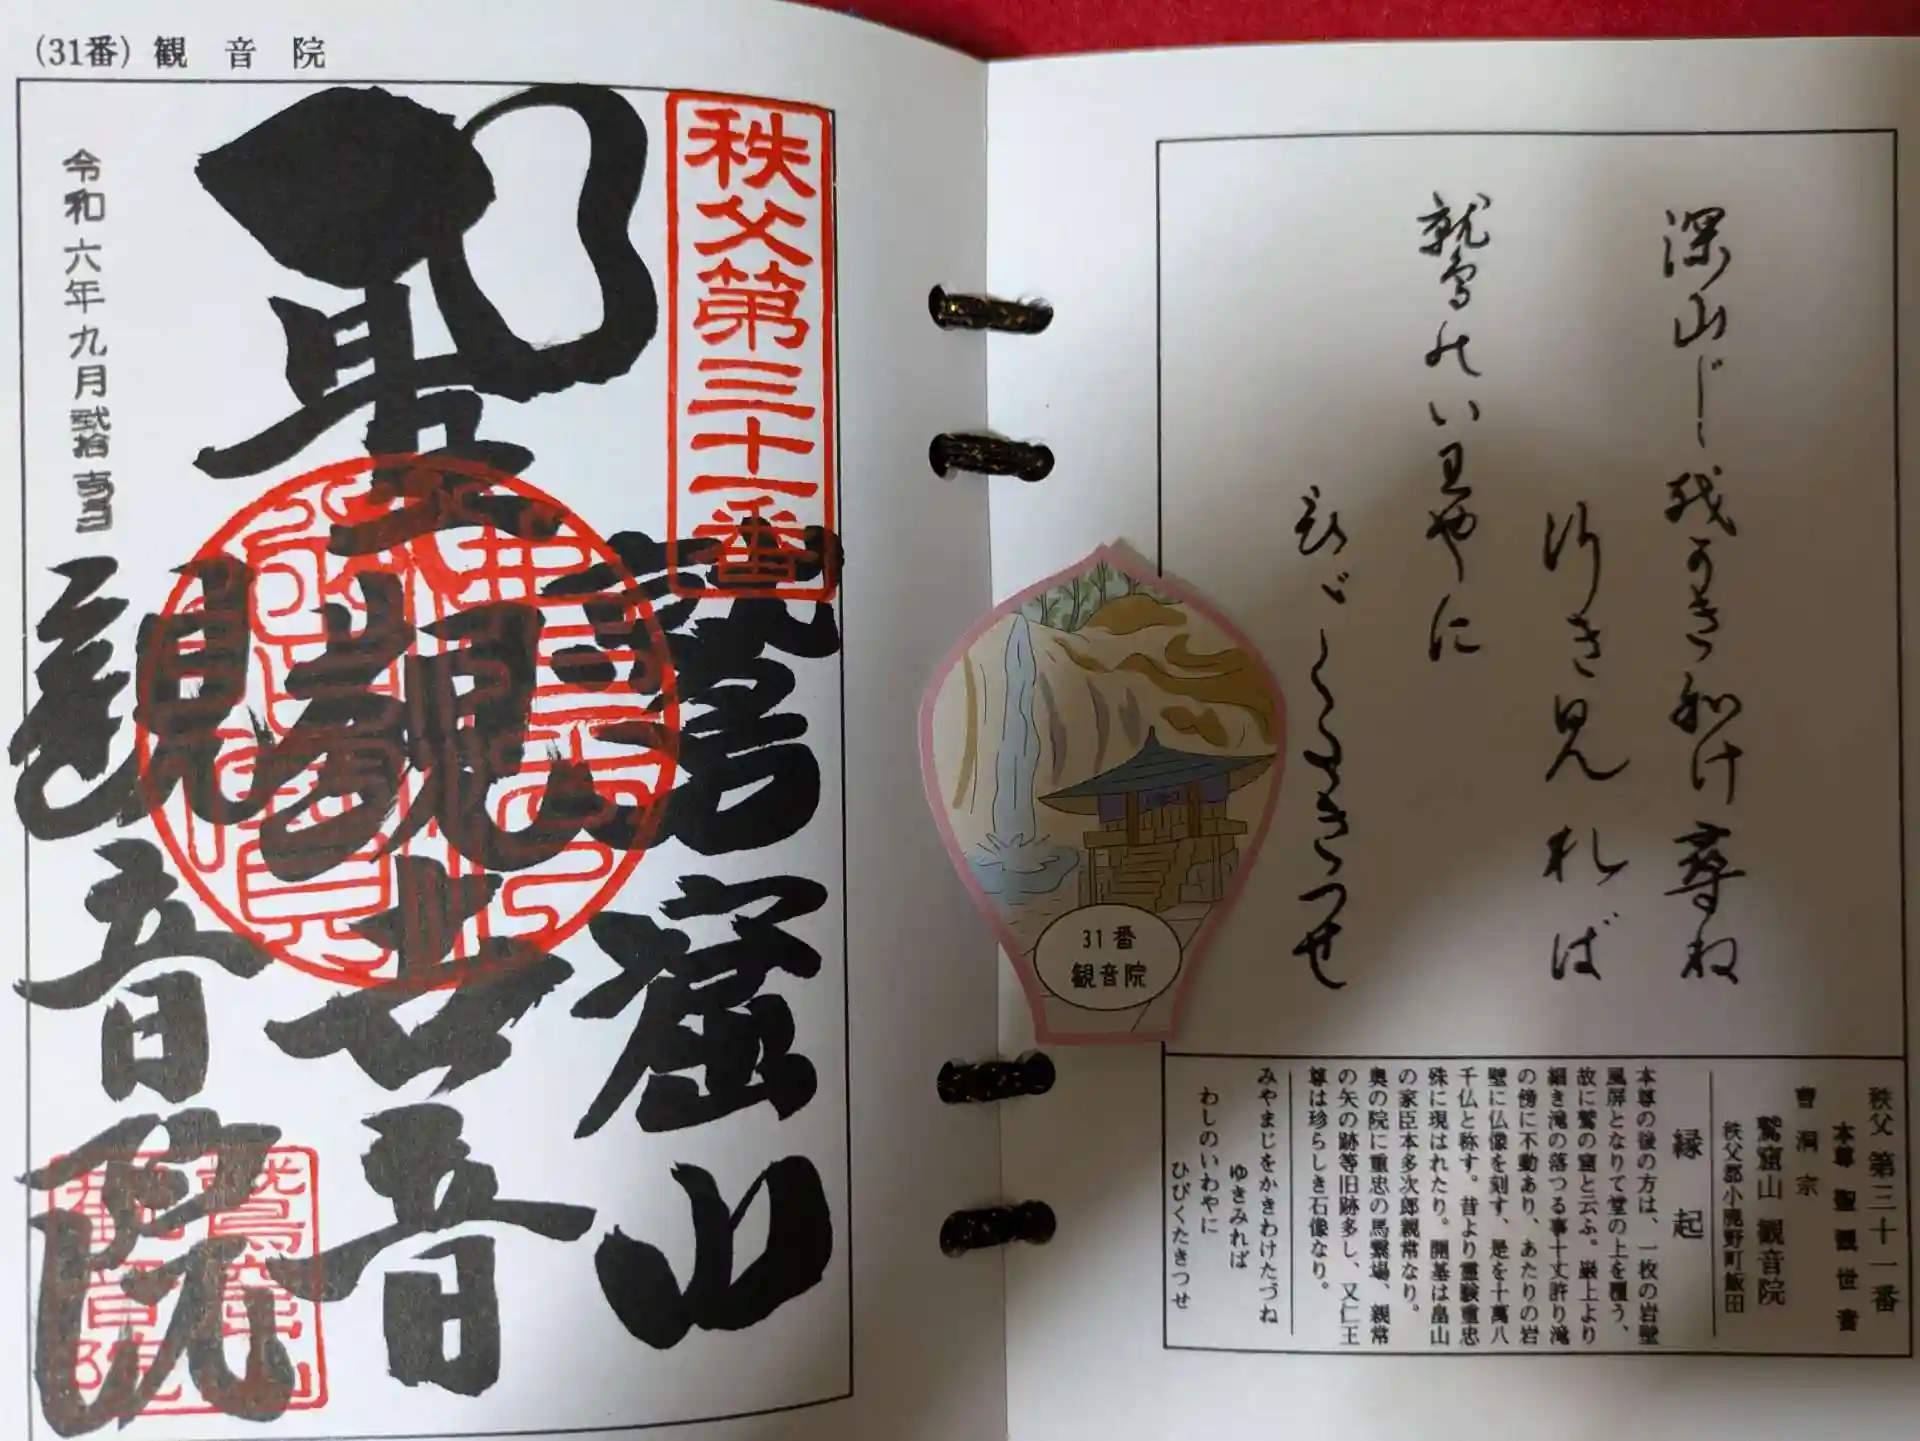 (31番) 観音院
秩父第三十一番
鷲窟山
聖観世音
観音院
令和六年九月弐拾壱日
深山じを かきわけ尋ね
行き見れば
鷲のいわやに
ひびくたきつせ
31番
観音院
秩父第三十一番
本尊 聖観世音
曹洞宗
鷲窟山 観音院
秩父郡小鹿野町飯田
縁起
本尊の後の方は、一枚の岩壁
風屏となりて堂の上を覆う、
故に鷲の窟と云ふ。巌上より
細き滝の落つる事十丈許り滝
の傍に不動あり、あたりの岩
壁に仏像を刻す、是を十萬八
千仏と称す。昔より霊験重忠
殊に現はれたり。開基は畠山
の家臣本多次郎親常なり。
奥の院に重忠の馬繋場、親常
の矢の跡等旧跡多し、又仁王
尊は珍らしき石像なり。
みやまじをかきわけたづね
ゆきみれば
わしのいわやに
ひびくたきつせ